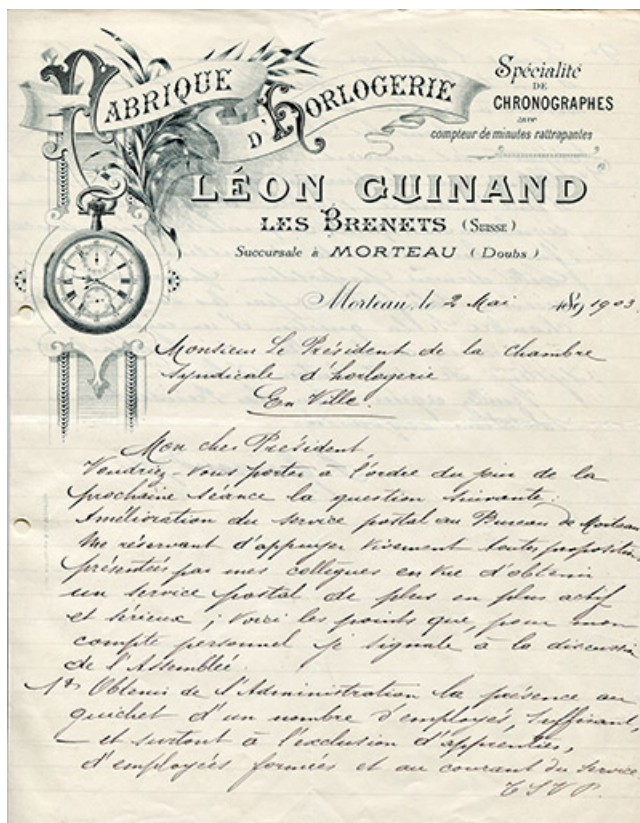 FABRIQUE D'HORLOGERIE
Spécialité
DE
CHRONOGRAPHES
avec
compteur de minutes rattrapantes
LÉON GUINAND
LES BRENETS (SUISSE)
Succursale à MORTEAU (Doubs)
Morteau, le 2 Mai 189 1903
Monsieur Le Président de la Chambre
Syndicale d'horlogerie
En Ville.
Mon cher Président,
Voudriez-vous porter à l'ordre du jour de la
prochaine séance la question suivante:
Amélioration du service postal au Bureau de Morteau
Me réservant d'appuyer vivement toutes proposition
présentées par mes collègues en vue d'obtenir
un service postal de plus en plus actif
et sérieux; voici les points que, pour mon
compte personnel je signale à la discussion
de l'Assemblée.
1° Obtenir de l'Administration la présence au
guichet d'un nombre d'employés, suffisant,
— et surtout à l'exclusion d'apprenties,
d'employées formées et au courant du service
T S V P.